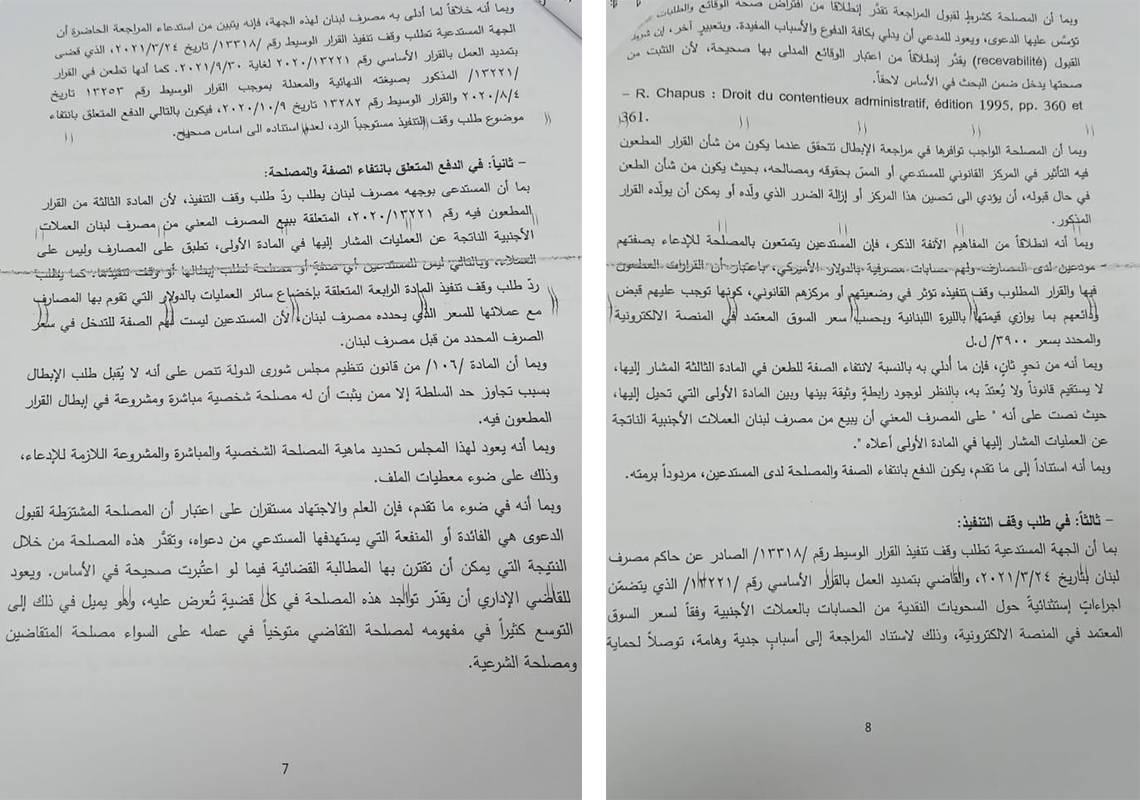 وبما أنه خلافاً لما أدلى به مصرف لبنان لهذه الجهة، فإنه يتبين من استدعاء المراجعة الحاضرة أن
الجهة المستدعية تطلب وقف تنفيذ القرار الوسيط رقم /١٣٣١٨/ تاريخ ٢٠٢١/٣/٢٤، الذي قضى
بتمديد العمل بالقرار الأساسي رقم ٢٠٢٠/١٣٢٢١ لغاية ٢٠٢١/٩/٣٠. كما أنها تطعن في القرار
/١٣٢٢١/ المذكور بصيغته النهائية والمعدلة بموجب القرار الوسيط رقم ١٣٢٥٣ تاريخ
٢٠٢٠/٨/٤ والقرار الوسيط رقم ١٣٢٨٢ تاريخ ٢٠٢٠/١٠/٩، فيكون بالتالي الدفع المتعلق بانتفاء
موضوع طلب وقف التنفيذ مستوجباً الرد، لعدم استناده الى اساس صحيح.
– ثانياً: في الدفع المتعلق بانتفاء الصفة والمصلحة:
بما أن المستدعى بوجهه مصرف لبنان يطلب ردّ طلب وقف التنفيذ، لأن المادة الثالثة من القرار
المطعون فيه رقم ٢٠٢٠/١٣٢٢١، المتعلقة ببيع المصرف المعني من مصرف لبنان العملات
الأجنبية الناتجة عن العمليات المشار إليها في المادة الأولى، تطبق على المصارف وليس على
العملاء، وبالتالي ليس للمستدعين أي صفة أو مصلحة لطلب إبطالها أو وقف تنفيذها. كما يطلب
ردّ طلب وقف تنفيذ المادة الرابعة المتعلقة بإخضاع سائر العمليات بالدولار التي تقوم بها المصارف
مع عملائها للسعر الذي يحدده مصرف لبنان، لأن المستدعين ليست لهم الصفة للتدخل في سعر
الصرف المحدد من قبل مصرف لبنان.
وبما أن المادة /١٠٦/ من قانون تنظيم مجلس شورى الدولة تنص على أنه لا يُقبل طلب الإبطال
بسبب تجاوز حد السلطة إلا ممن يثبت أن له مصلحة شخصية مباشرة ومشروعة في إبطال القرار
المطعون فيه.
وبما أنه يعود لهذا المجلس تحديد ماهية المصلحة الشخصية والمباشرة والمشروعة اللازمة للإدعاء،
وذلك على ضوء معطيات الملف.
وبما أنه في ضوء ما تقدم، فإن العلم والاجتهاد مستقران على اعتبار أن المصلحة المشترطة لقبول
الدعوى هي الفائدة أو المنفعة التي يستهدفها المستدعي من دعواه، وتقدّر هذه المصلحة من خلال
النتيجة التي يمكن أن تقترن بها المطالبة القضائية فيما لو اعتُبرت صحيحة في الأساس. ويعود
للقاضي الإداري أن يقدّر تواجد هذه المصلحة في كلّ قضيةٍ تُعرض عليه، وهو يميل في ذلك إلى
التوسع كثيراً في مفهومه لمصلحة التقاضي متوخياً في عمله على السواء مصلحة المتقاضين
ومصلحة الشرعية.
7
وبما أن المصلحة كشرطٍ لقبول المراجعة تقدّر إنطلاقاً من افتراض صحة الوقائع والطلبات
تؤسّس عليها الدعوى، ويعود للمدعي أن يدلي بكافة الدفوع والأسباب المفيدة. وبتعبيرٍ آخر، إن شروط
القبول (recevabilité) يقدّر إنطلاقاً من اعتبار الوقائع المدلى بها صحيحة، لأن التثبت من
صحتها يدخل ضمن البحث في الأساس لاحقاً.
– R. Chapus : Droit du contentieux administratif, édition 1995, pp. 360 et
361.
وبما أن المصلحة الواجب توافرها في مراجعة الإبطال تتحقق عندما يكون من شأن القرار المطعون
فيه التأثير في المركز القانوني للمستدعي أو المسّ بحقوقه ومصالحه، بحيث يكون من شأن الطعن
في حال قبوله، أن يؤدي الى تحسين هذا المركز أو إزالة الضرر الذي ولّده أو يمكن أن يولّده القرار
المذكور.
وبما أنه انطلاقاً من المفاهيم الآنفة الذكر، فإن المستدعين يتمتعون بالمصلحة للإدعاء بصفتهم
مودعين لدى المصارف ولهم حسابات مصرفية بالدولار الأميركي، باعتبار أن القرارات المطعون
فيها والقرار المطلوب وقف تنفيذه تؤثر في وضعيتهم أو مركزهم القانوني، كونها توجب عليهم قبض
ودائعهم بما يوازي قيمتها بالليرة اللبنانية وبحسب سعر السوق المعتمد في المنصة الالكترونية
والمحدد بسعر ٣٩٠٠/ ل.ل
وبما أنه من نحوٍ ثانٍ، فإن ما أدلي به بالنسبة لانتفاء الصفة للطعن في المادة الثالثة المشار إليها،
لا يستقيم قانوناً ولا يُعتدّ به، بالنظر لوجود رابطةٍ وثيقة بينها وبين المادة الأولى التي تحيل إليها،
حيث نصت على أنه " على المصرف المعني أن يبيع من مصرف لبنان العملات الأجنبية الناتجة
عن العمليات المشار إليها في المادة الأولى أعلاه ".
وبما أنه استناداً إلى ما تقدم، يكون الدفع بانتفاء الصفة والمصلحة لدى المستدعين، مردوداً برمته.
– ثالثاً: في طلب وقف التنفيذ:
بما أن الجهة المستدعية تطلب وقف تنفيذ القرار الوسيط رقم /١٣٣١٨/ الصادر عن حاكم مصرف
لبنان بتاريخ ٢٠٢١/٣/٢٤، والقاضي بتمديد العمل بالقرار الأساسي رقم /١٣٢٢١/ الذي يتضمّن
اجراءاتٍ إستثنائيةً حول السحوبات النقدية من الحسابات بالعملات الأجنبية وفقاً لسعر السوق
المعتمد في المنصة الالكترونية، وذلك لاستناد المراجعة إلى أسبابٍ جدية وهامة، توصلاً لحماية
8